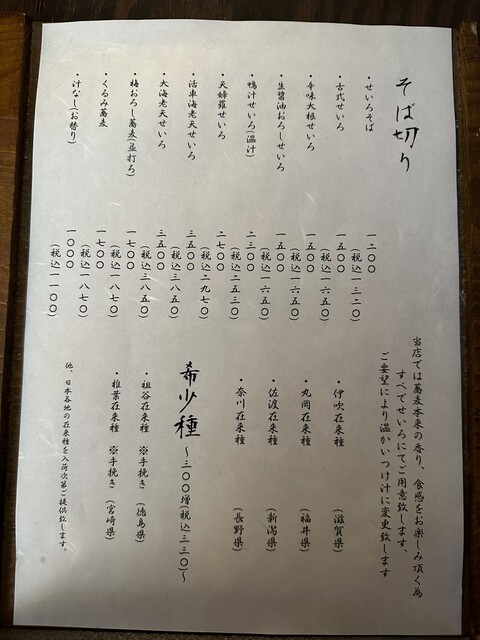 そば切り
・せいろそば
一二〇〇
(税込一三二〇)
・古式せいろ
一五〇〇
(税込一六五〇)
・辛味大根せいろ
一五〇〇
(税込一六五〇)
・生醤油おろしせいろ
一五〇〇
(税込一六五〇)
・鴨汁せいろ(温汁)
二三〇〇
(税込二五三〇)
・天婦羅せいろ
二七〇〇
(税込二九七〇)
・活車海老天せいろ
三五〇〇
(税込三八五〇)
・大海老天せいろ
三五〇〇
(税込三八五〇)
・梅おろし蕎麦(並打ろ)
一七〇〇
(税込一八七〇)
・くるみ蕎麦
一七〇〇
(税込一八七〇)
・汁なし(お替り)
一〇〇〇
(税込一一〇〇)
当店では蕎麦本来の香り、食感をお楽しみ頂く為
すべてせいろにてご用意致します、
ご要望により温かいつけ汁に変更致します
・伊吹在来種 (滋賀県)
・丸岡在来種 (福井県)
・佐渡在来種 (新潟県)
・奈川在来種 (長野県)
希少種 ～三〇〇増(税込三三〇)～
・祖谷在来種 ※手挽き (徳島県)
・椎葉在来種 ※手挽き (宮崎県)
他、日本各地の在来種を入荷次第ご提供致します。